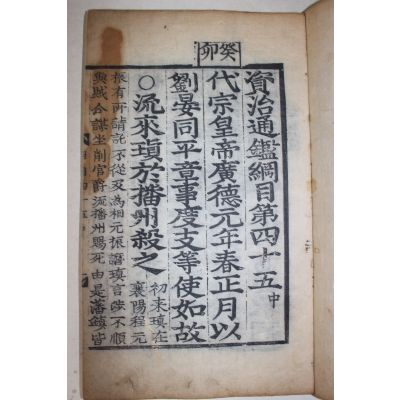 癸卯
資治通鑑綱目第四十五中
代宗皇帝廣德元年春正月以
劉晏同平章事度支等使如故
○流來瑱於播州殺之
初來瑱在
襄陽程元
振有所請託不從及為相元振譖瑱言涉不順
與賊合謀坐削官爵流播州賜死由是藩鎮皆